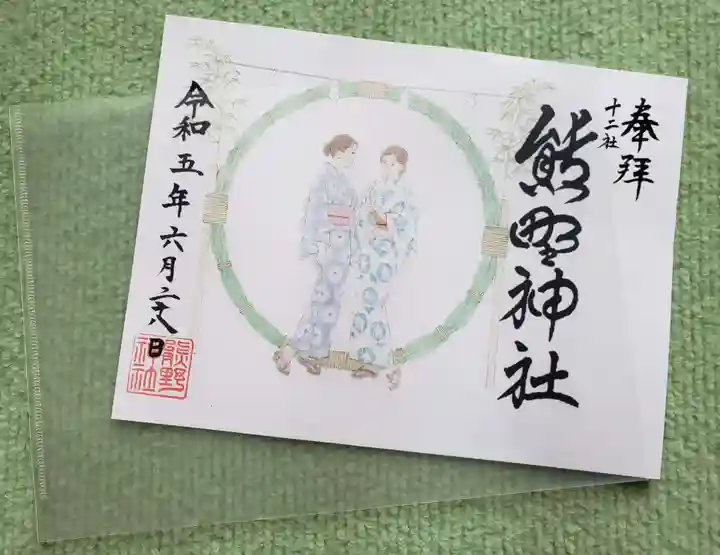 奉拝
十二社
熊野神社
令和五年六月二十八
日
熊野
神社